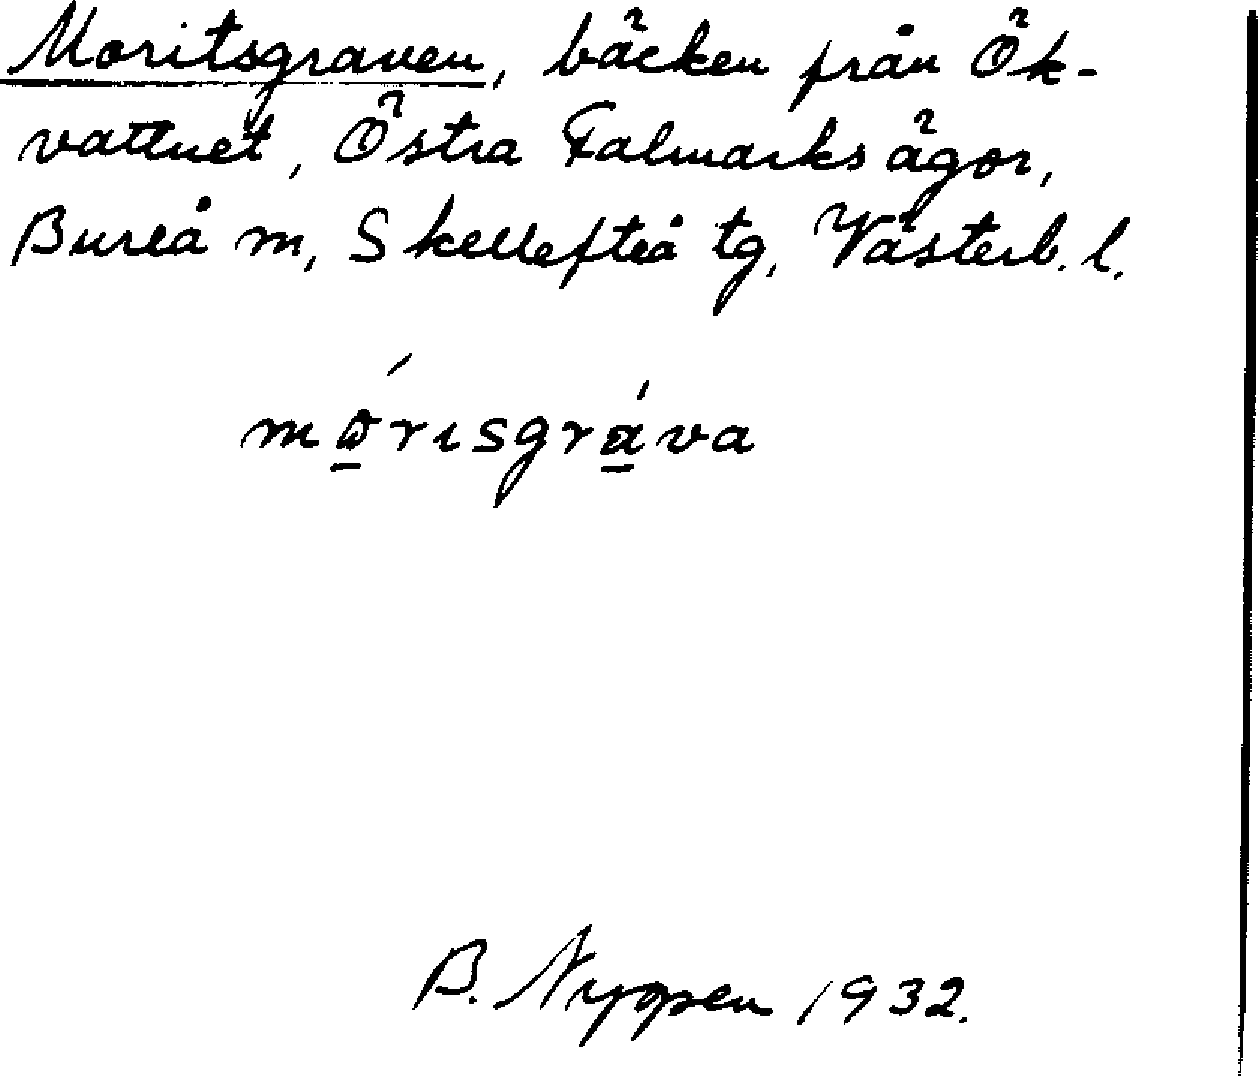 Moritsgraven, bäcken från Ök-
vattnet, Östra Falmarks ägor,
Bureå m, Skellefteå tg, Västerb. l.
mώ̱rısgrá̱va
B. Nygren 1932.